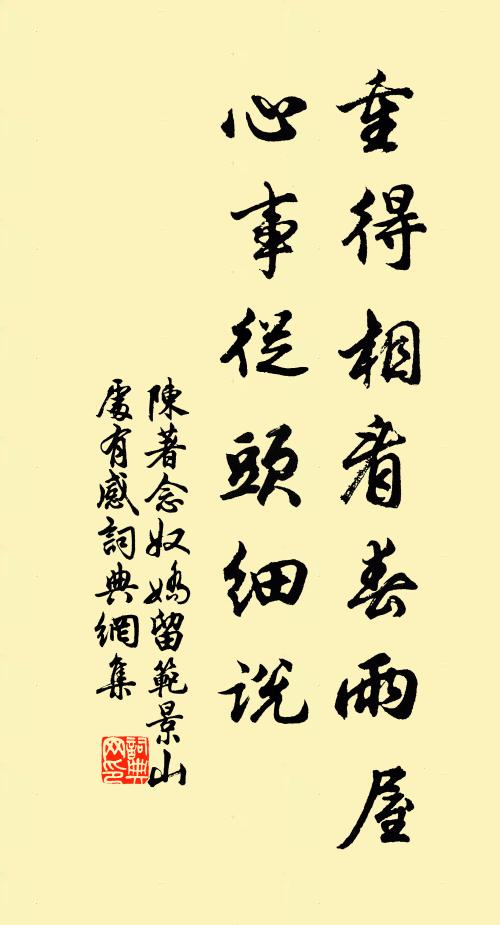 重得相看春雨屋
心事從頭細說
陳著念奴嬌留範景山
處有感詞典網集
詞典网印